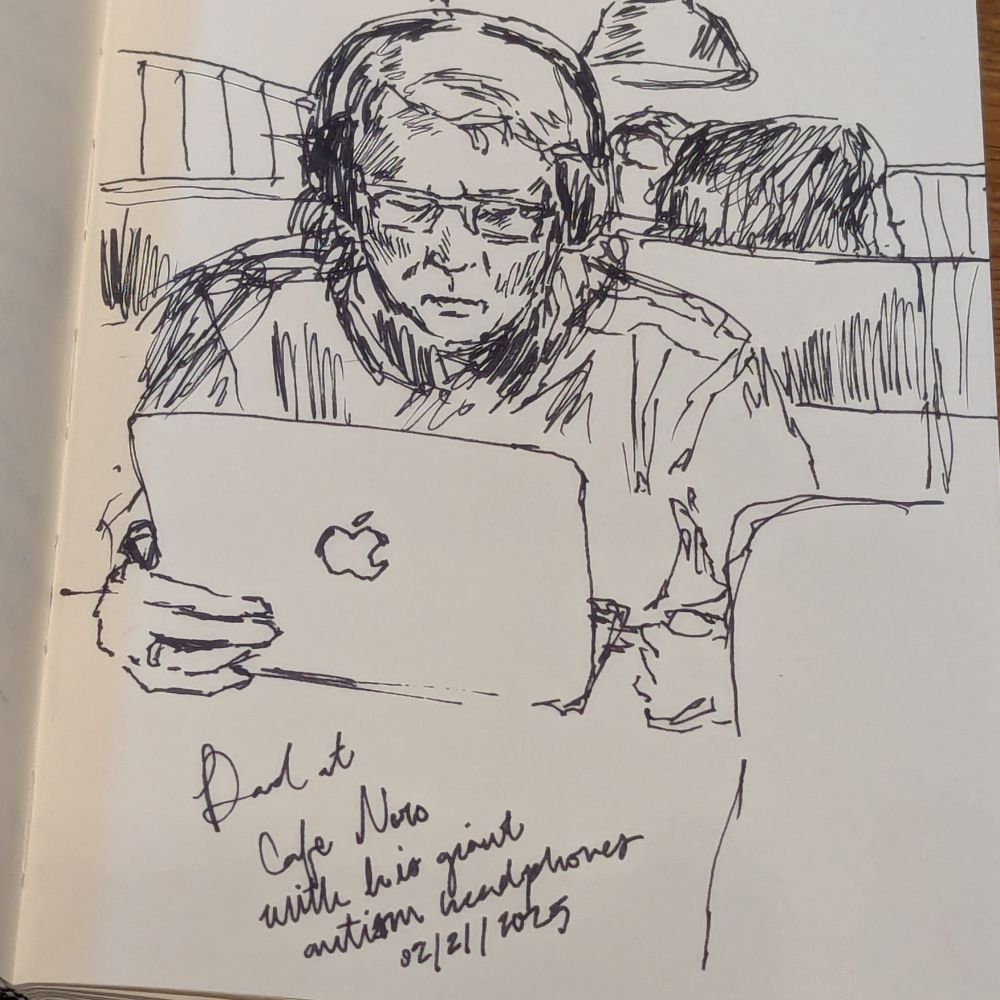 Dad at
Cafe Nero
with his giant
autism headphones
02/21/2025